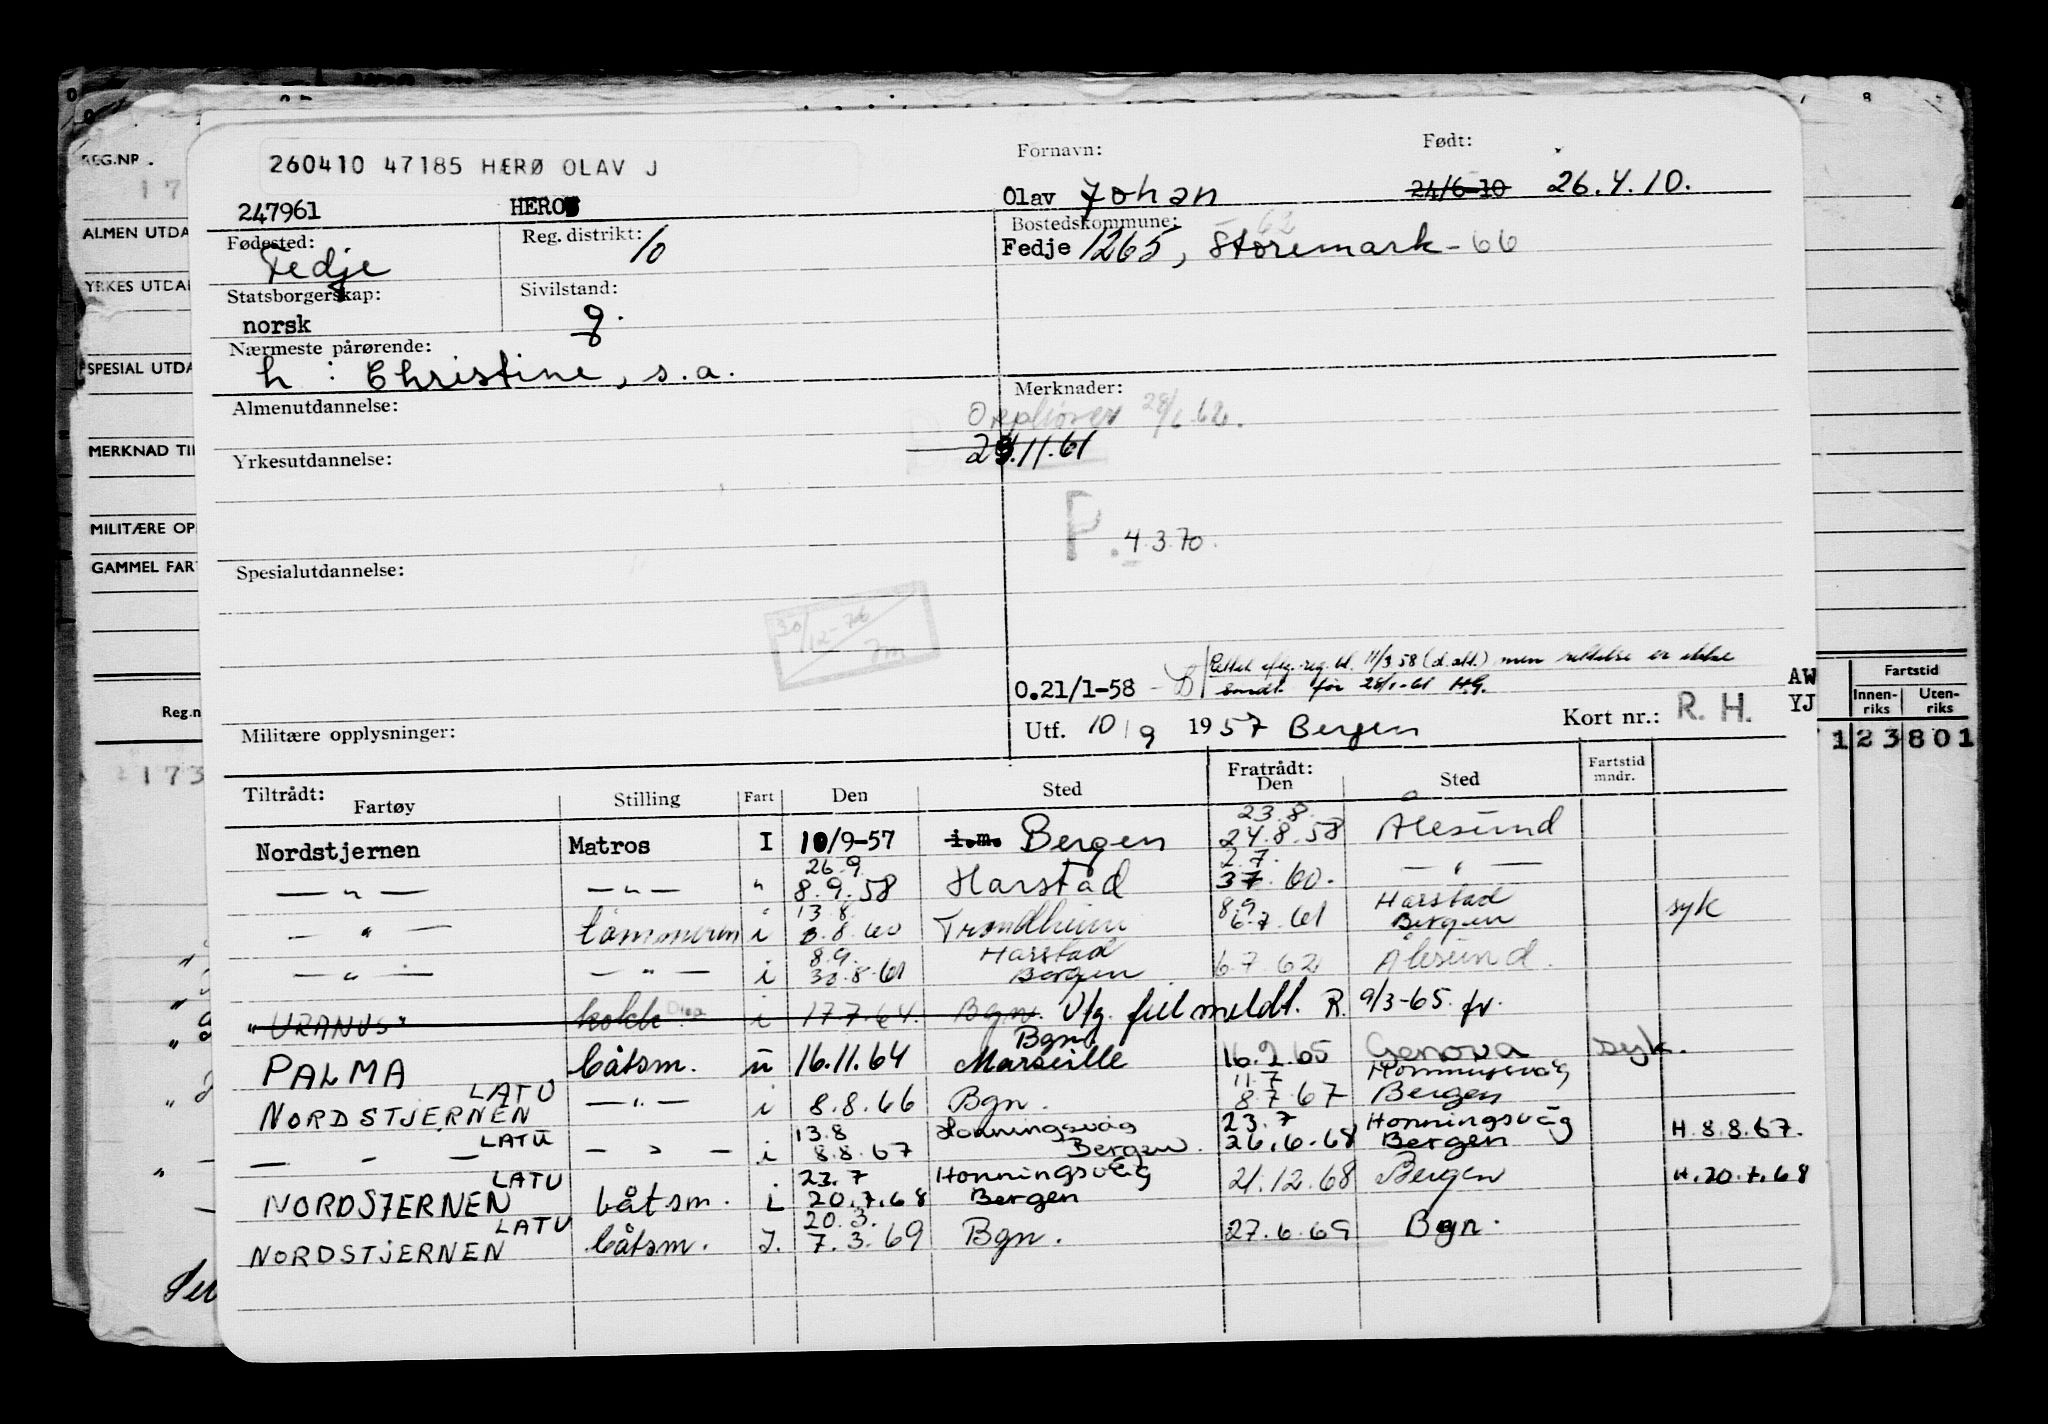 REG.NR.
ALMEN UTDA
YRKES UTDA
SPESIAL UTDA
MERKNAD TI
MILITÆRE OP
GAMMEL FAR
Reg.n
173
260410 47185 HÆRØ OLAV J
Fornavn: Født:
247961 HERO Olav Johan 24/6-10 26.4.10.
Fødested: Reg. distrikt: Bostedskommune: 62
Fedje 10 Fedje 1265, Storemark-66
Statsborgerskap: Sivilstand:
norsk g.
Nærmeste pårørende:
h : Christine, s.a.
Almenutdannelse: Merknader:
28/1.62.
Yrkesutdannelse: 29.11.61
P. 4.3.70.
Spesialutdannelse:
30/12-76
0.21/1-58 reg. bl. 11/3 58 (d.att.) men rettelse er ikke
sendt før 28/1-61 H.G.
Militære opplysninger: Utf. 10/9 1957 Bergen Kort nr.: R. H.
AW
YJ
Fartstid
Innen-riks Uten-riks
123801
Tiltrådt: Fratrådt: Fartstid mndr.
Fartøy Stilling Fart Den Sted Den Sted
23.8.
Nordstjernen Matros I 10/9-57 i.m. Bergen 24.8.58 Ålesund
26.9. 2.7.
— " — — " — " 8.9.58 Harstad 37.60. — " —
13.8. 8.9 Harstad
— " — tømmermn i 8.8.60 Trondheim 6.7.61 Bergen syk
8.9. Harstad
— " — — " — i 30.8.61 Bergen 6.7.62 Ålesund.
"URANUS" kokk i 17.7.64. Bgn. Utg. feil meldt. R. 9/3-65. fr.
Bgn
PALMA båtsm. u 16.11.64 Marseille 16.2.65 Genova syk.
LATU 11.7 Honningsvåg
NORDSTJERNEN — " — i 8.8.66 Bgn. 8.7.67 Bergen
LATU 13.8 Honningsvåg 23.7 Honningsvåg
— " — — " — i 8.8.67 Bergen. 26.6.68 Bergen H.8.8.67.
LATU 23.7 Honningsvåg
NORDSJERNEN båtsm. i 20.7.68 Bergen 21.12.68 Bergen H.20.7.68
LATU 20.3.
NORDSTJERNEN båtsm. I. 7.3.69 Bgn. 27.6.69 Bgn.